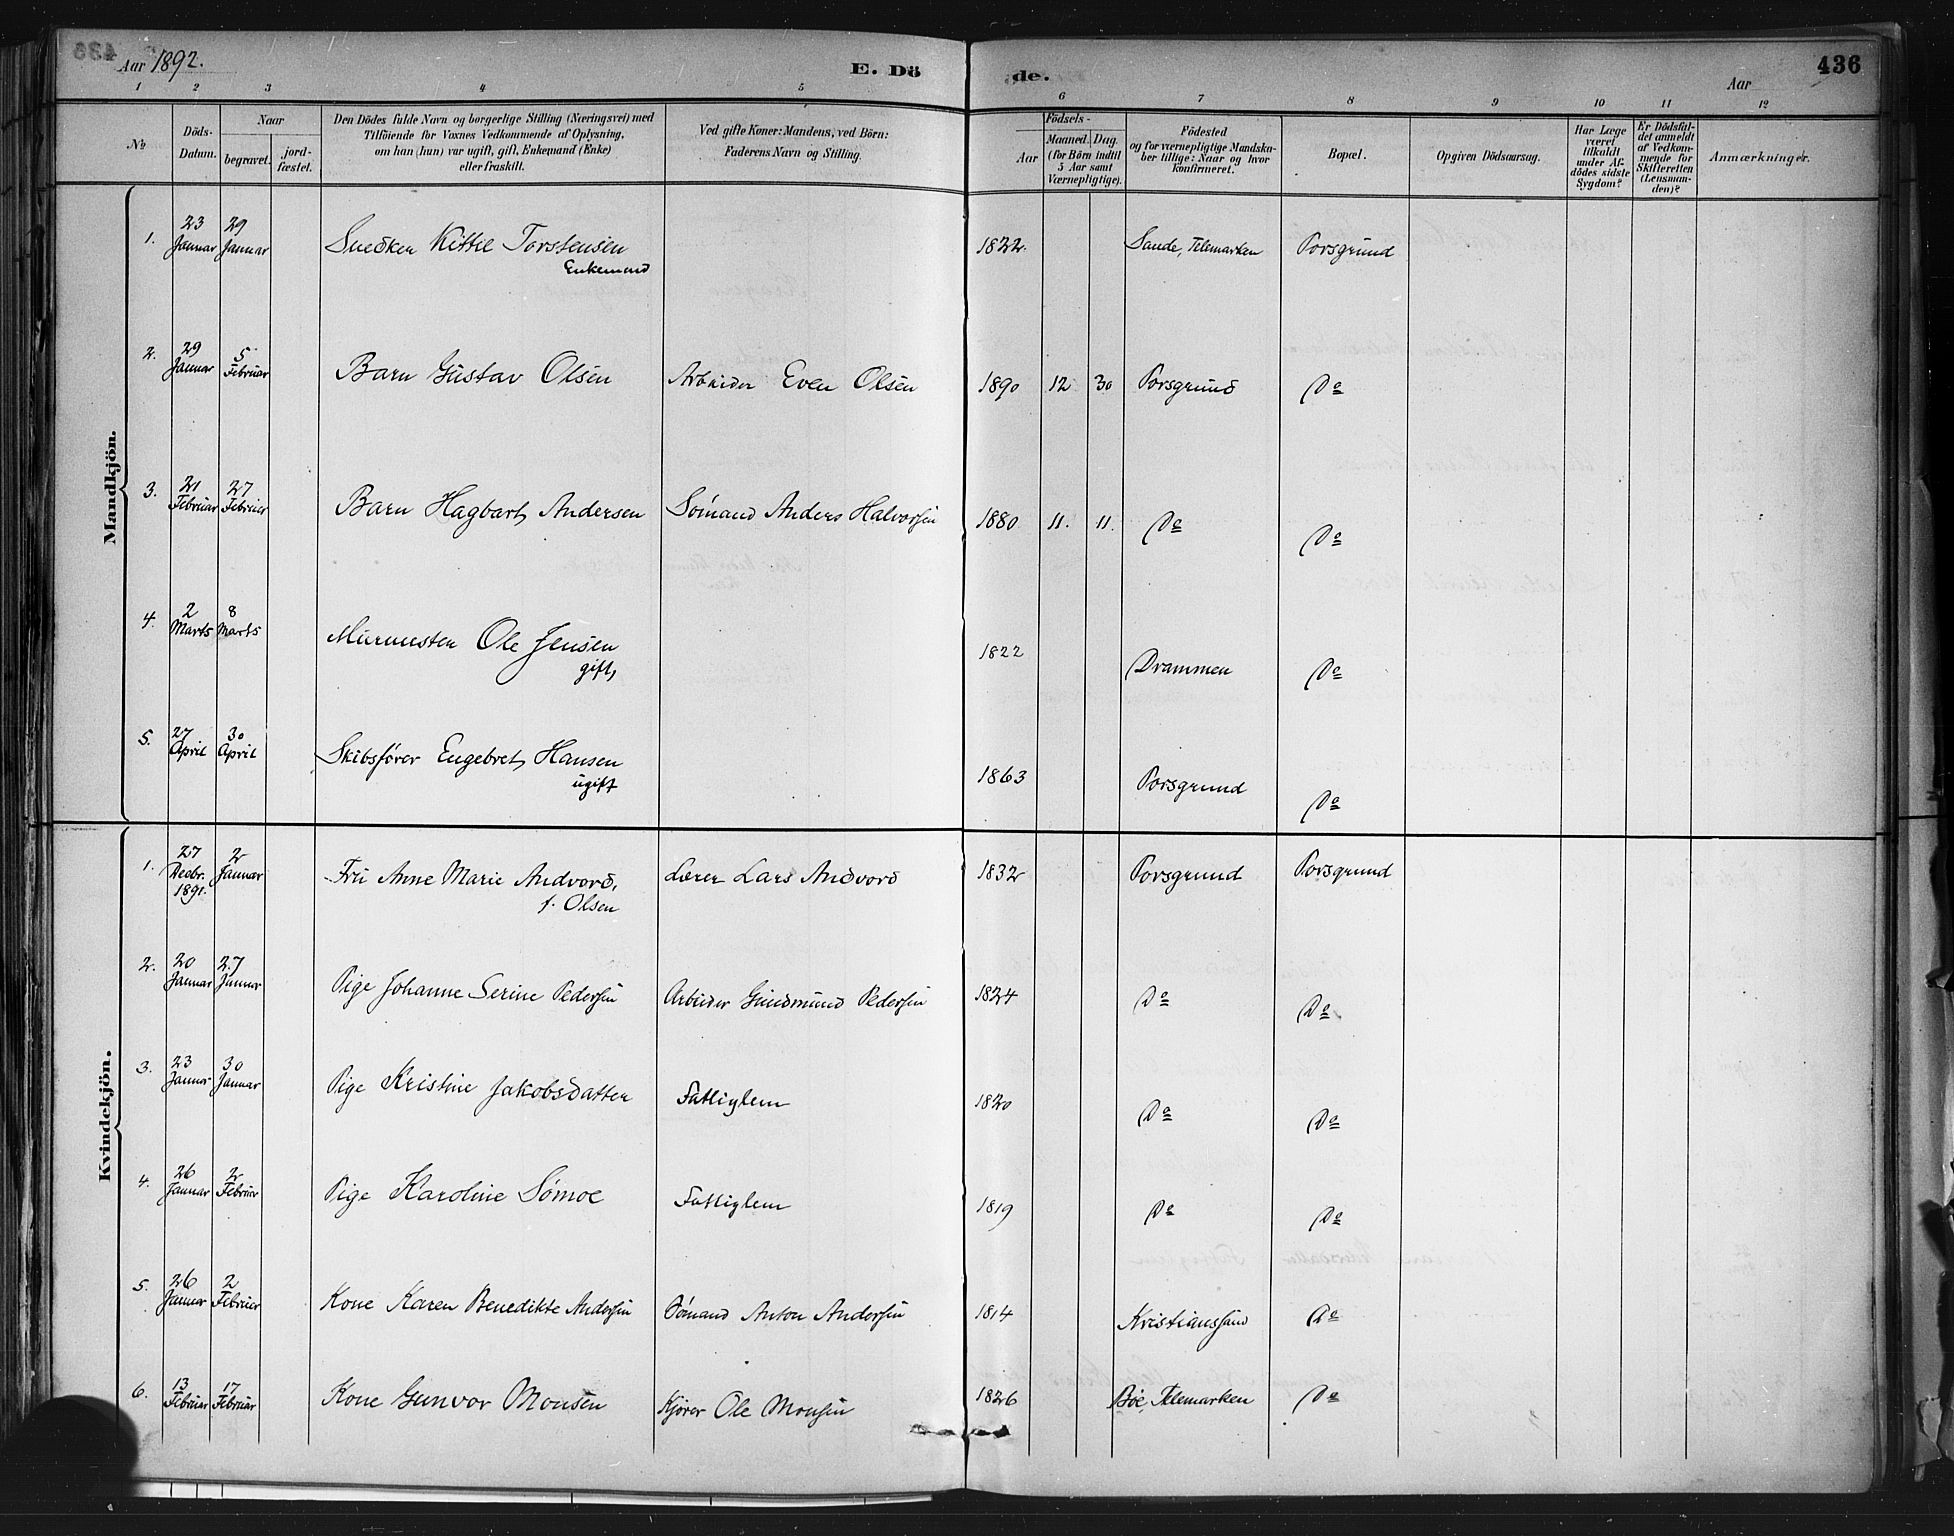 Aar 1892.
E. Dö
de.
Aar
436
1 2 3 4 5 6 7 8 9 10 11 12
No
Döds-
Datum.
Naar
begravet.
jord-
fæstet.
Den Dödes fulde Navn og borgerlige Stilling (Næringsvei) med
Tilföiende for Voxnes Vedkommende af Oplysning,
om han (hun) var ugift, gift, Enkemand (Enke)
eller fraskilt.
Ved gifte Koner: Mandens, ved Börn:
Faderens Navn og Stilling.
Födsels-
Aar
Maaned.
Dag.
(for Börn indtil
5 Aar samt
Værnepligtige).
Födested
og for værnepligtige Mandska-
ber tillige: Naar og hvor
konfirmeret.
Bopæl.
Opgiven Dödsaarsag.
Har Læge
været
tilkaldt
under Af-
dödes sidste
Sygdom?
Er Dödsfal-
det anmeldt
af Vedkom-
mende for
Skifteretten
(Lensman-
den)?
Anmærkninger.
Mandkjön.
1. 23 Januar 29 Januar Snedker Kittil Torstensen 1822. Sande, Telemarken Porsgrund
Enkemand
2. 29 Januar 5 Februar Barn Gustav Olsen Arbeider Even Olsen 1890 12 30 Porsgrund Do
3. 21 Februar 27 Februar Barn Hagbart Andersen Sömand Anders Halvorsen 1880 11. 11. Do Do
4. 2 Marts 8 Marts Murmester Ole Jensen 1822 Drammen Do
gift,
5. 27 April 30 April Skibsfører Engebret Hansen 1863 Porsgrund Do
ugift
Kvindekjön.
1. 27 Decbr. 1891. 2 Januar Fru Anne Marie Andvord, Lærer Lars Andvord 1832 Porsgrund Porsgrund
f. Olsen
2. 20 Januar 27 Januar Pige Johanne Serine Pedersen Arbeider Gundmund Pedersen 1824 Do Do
3. 23 Januar 30 Januar Pige Kristine Jakobsdatter Fattiglem 1820 Do Do
4. 26 Januar 2 Februar Pige Karoline Sömoe Fattiglem 1819 Do Do
5. 26 Januar 2 Februar Kone Karen Benedikte Andersen Sömand Anton Andersen 1814 Kristianssand Do
6. 13 Februar 17 Februar Kone Gunvor Monsen Kjører Ole Monsen 1826 Böe, Telemarken Do